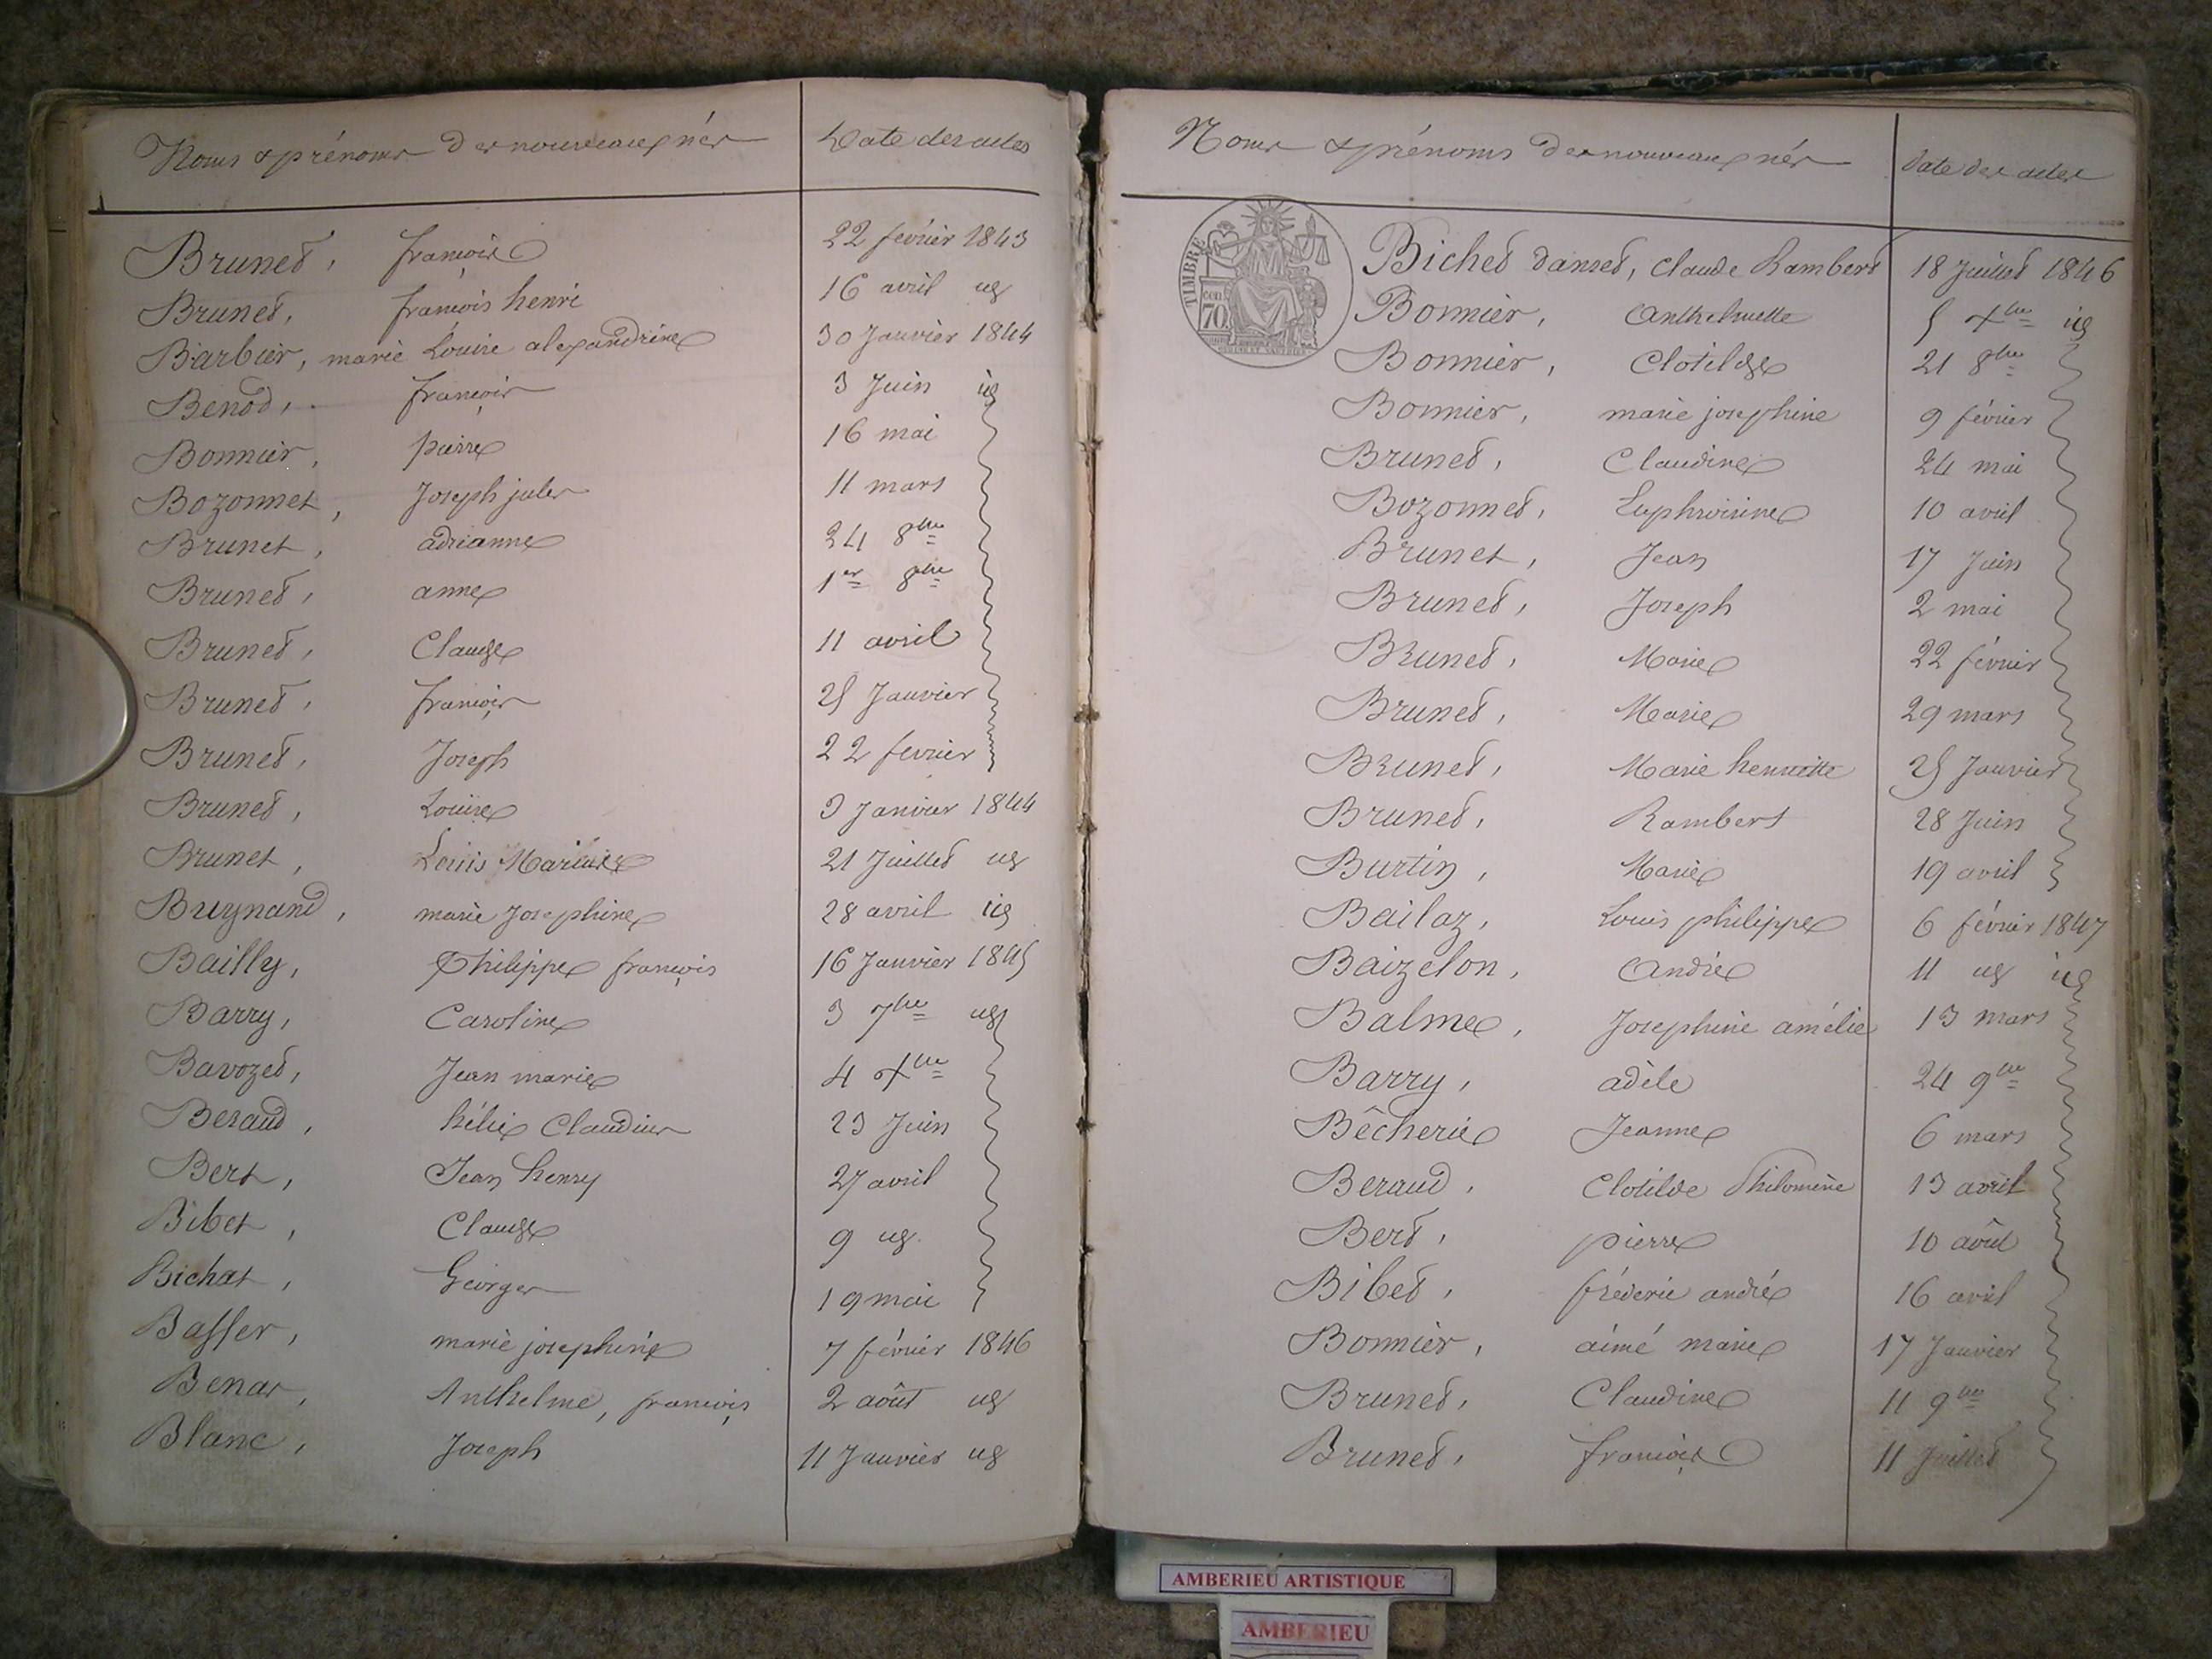 Noms & prénoms des nouveaux nés Date des actes
Brunet, françois 22 février 1843
Brunet, françois henri 16 avril id
Barbier, marie Louise alexandrine 30 Janvier 1844
Benod, françois 3 Juin id
Bonnier, pierre 16 mai
Bozonnet, Joseph jules 11 mars
Brunet, adrianne 24 8bre
Brunet, anne 1er 8bre
Brunet, Claude 11 avril
Brunet, françois 25 Janvier
Brunet, Joseph 22 fevrier
Brunet, Louise 3 Janvier 1844
Brunet, Louis Marius 21 Juillet id
Buynand, marie Josephine 28 avril id
Bailly, Philippe françois 16 Janvier 1845
Barry, Caroline 3 7bre id
Bavozet, Jean marie 4 Xbre
Beraud, félix Claudius 23 Juin
Bert, Jean henry 27 avril
Bibet, Claude 9 id
Bichat, Georges 19 mai
Basser, marie josephine 7 février 1846
Benas, Anthelme, françois 2 août id
Blanc, Joseph 11 Janvier id
Noms & prénoms des nouveaux nés date des actes
TIMBRE
70
Bichet danset, Claude Rambert 18 Juillet 1846
Bonnier, Anthelmette 5 Xbre id
Bonnier, Clotilde 21 8bre
Bonnier, marie josephine 9 février
Brunet, Claudine 24 mai
Bozonnet, Euphroisine 10 avril
Brunet, Jean 17 Juin
Brunet, Joseph 2 mai
Brunet, Marie 22 février
Brunet, Marie 29 mars
Brunet, Marie henriette 25 Janvier
Brunet, Rambert 28 Juin
Burtin, Marie 19 avril
Bailaz, Louis philippe 6 février 1847
Baizelon, André 11 id id
Balme, Josephine amélie 13 mars
Barry, adèle 24 9bre
Bêcherie Jeanne 6 mars
Beraud, Clotilde Philomène 13 avril
Bert, pierre 10 août
Bibet, fréderic andré 16 avril
Bonnier, aimé marie 17 Janvier
Brunet, Claudine 11 9bre
Brunet, françois 11 Juillet
AMBERIEU ARTISTIQUE
AMBERIEU